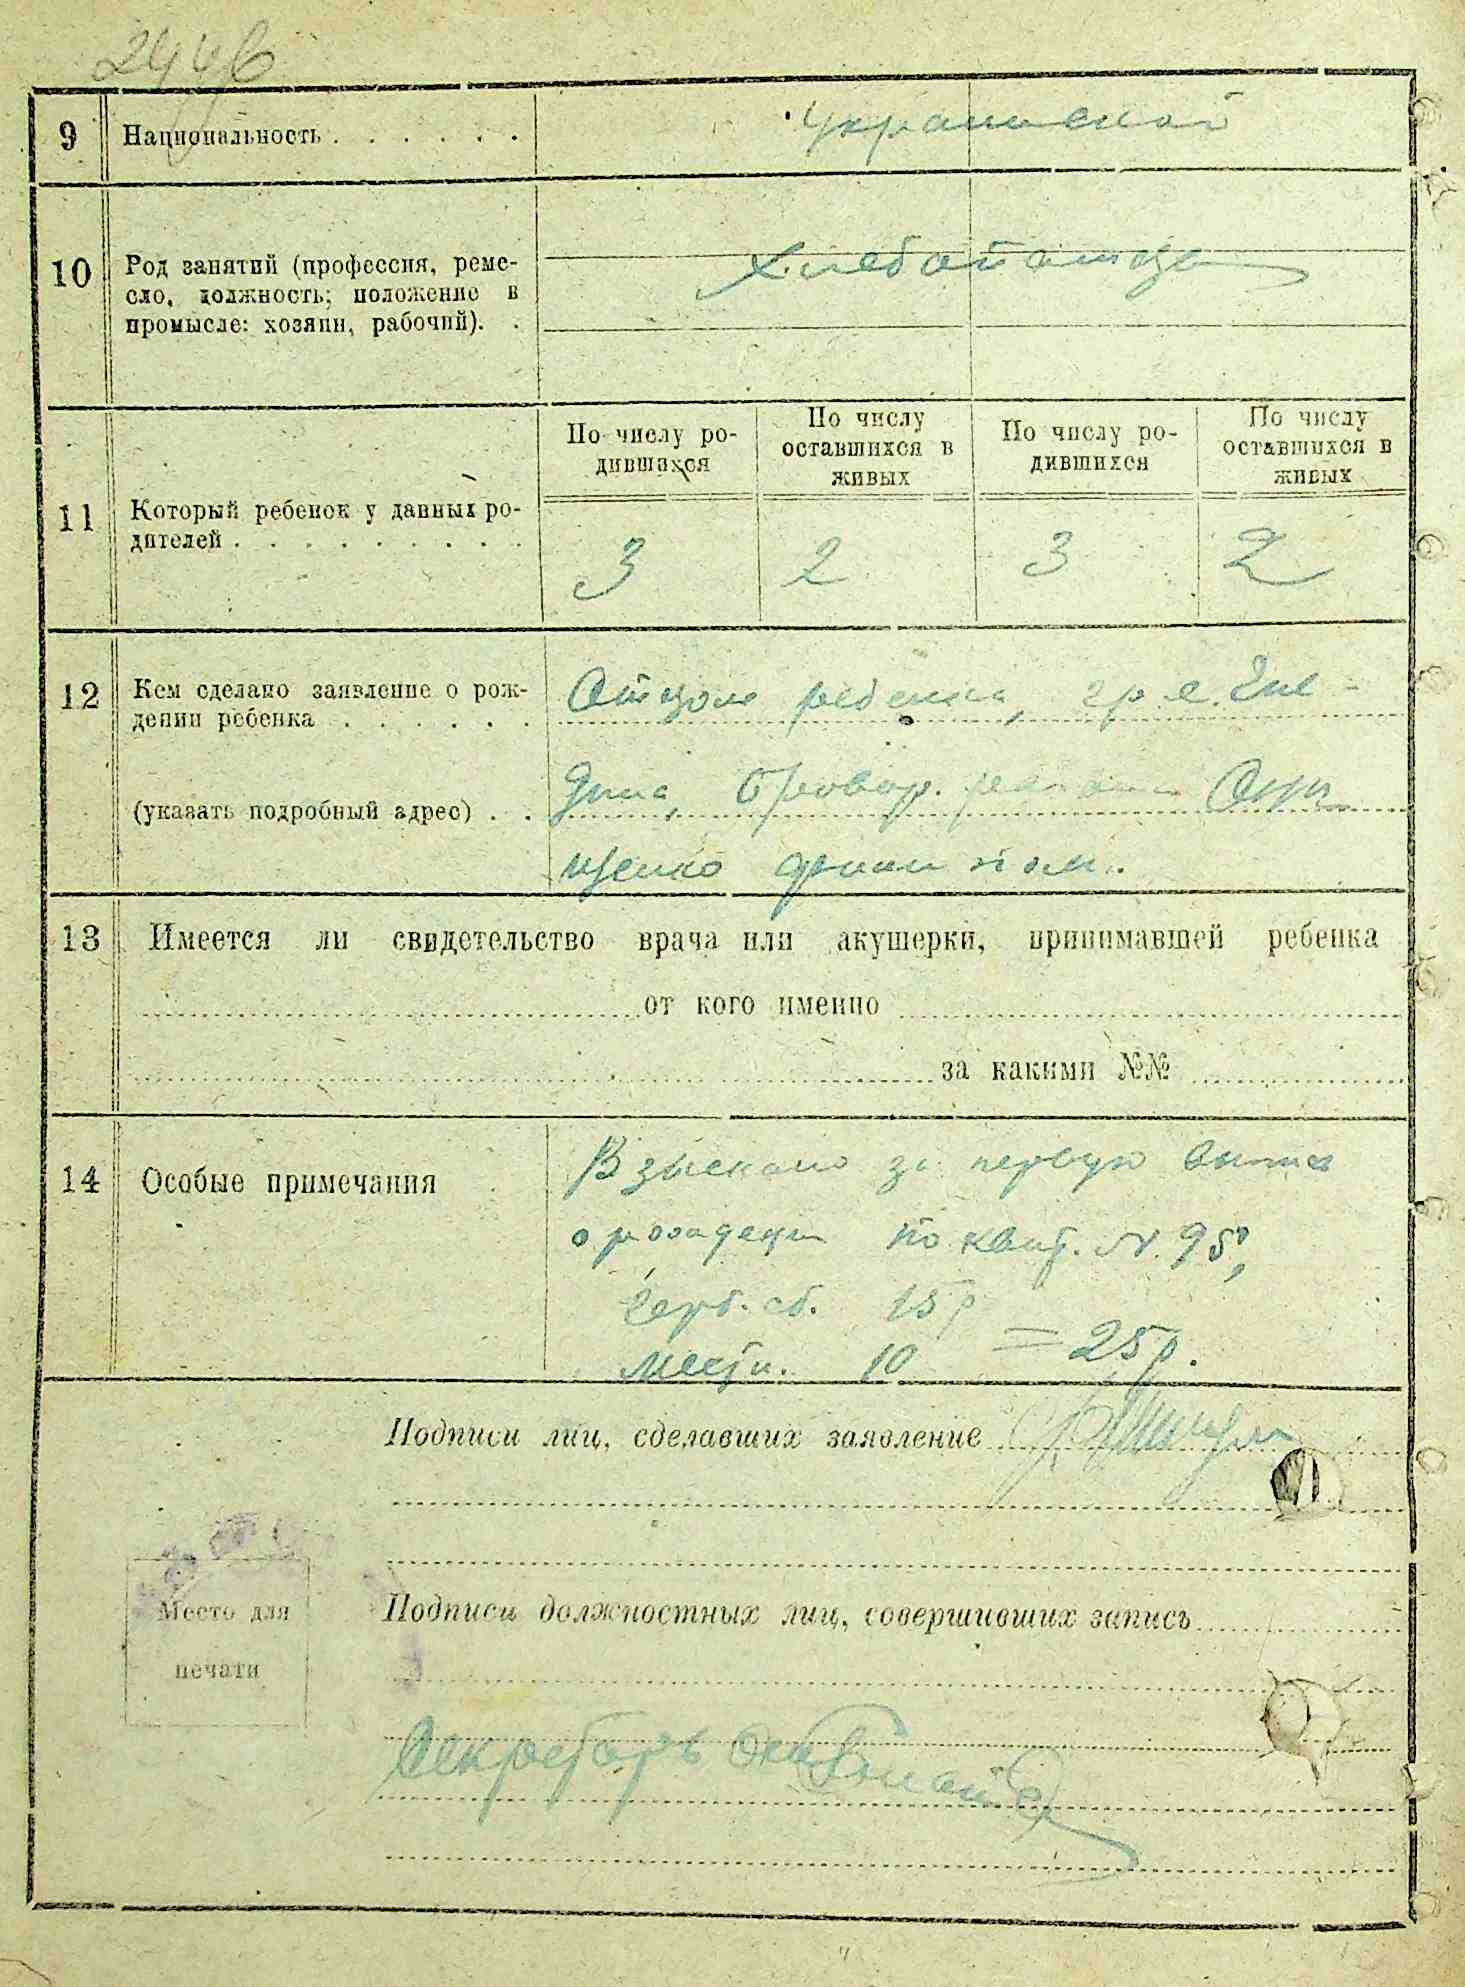 2446
9 Национальность . . . . . . . украинской
10 Род занятий (профессия, реме-
сло, должность; положение в
промысле: хозяин, рабочий). .
Хлебопашец
По числу ро-
дившихся
По числу
оставшихся в
живых
По числу ро-
дившихся
По числу
оставшихся в
живых
11 Который ребенок у данных ро-
дителей . . . . . . . . .
3 2 3 2
12 Кем сделано заявление о рож-
дении ребенка . . . . . .
Отцом ребенка, гр. с.
(указать подробный адрес) . .
13 Имеется ли свидетельство врача или акушерки, принимавшей ребенка
от кого именно
за какими №№
14 Особые примечания
Взыскано за первую
о рождении по квит. № 95,
Герб. сб. 15 р
Местн. 10 = 25 р.
Подписи лиц, сделавших заявление
Подписи должностных лиц, совершивших запись
Место для
печати
Секретарь